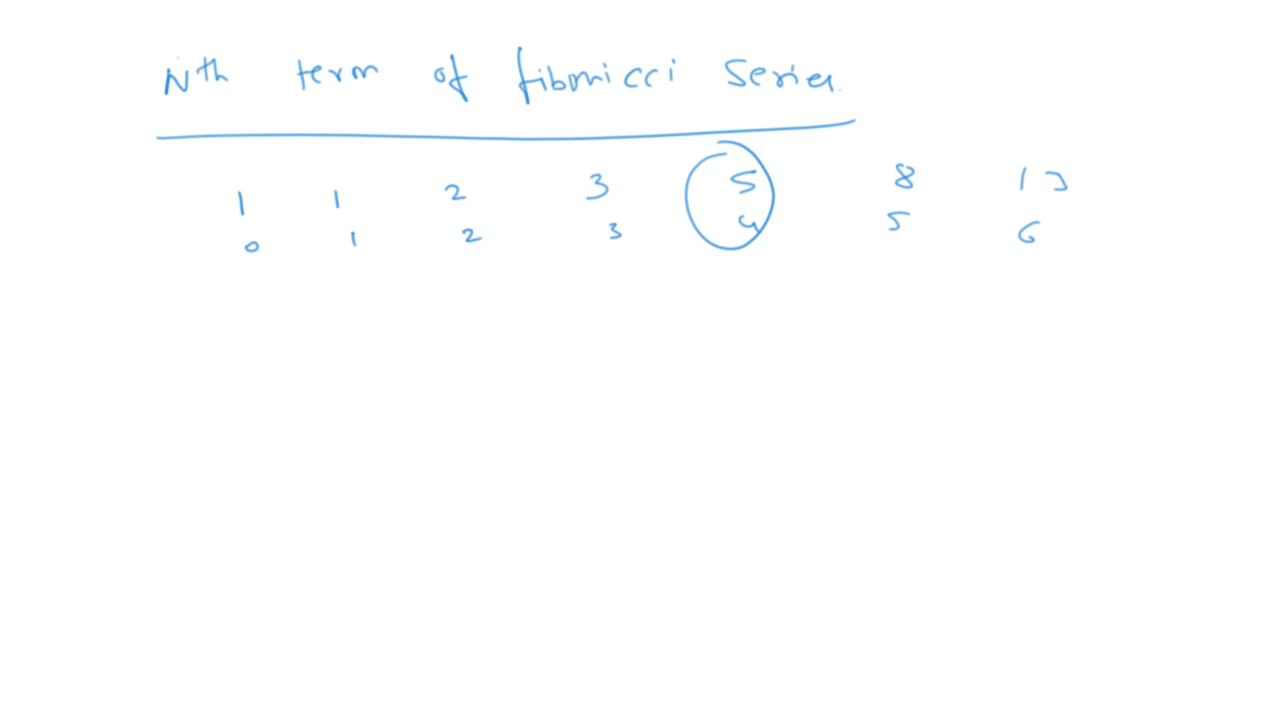 Nth term of fibonicci series
1 1 2 3 5 8 13
0 1 2 3 4 5 6